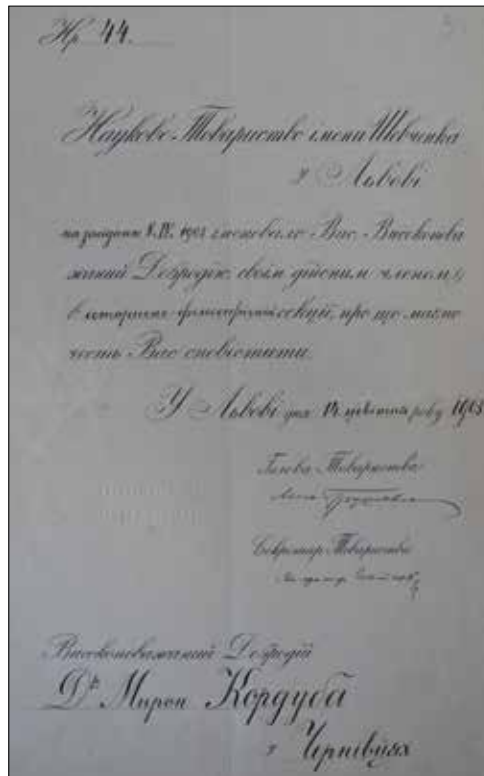 Нр 44.
Наукове Товариство імени Шевченка
у Львові
на засіданю 8.IV. 1903 іменовало Вас, Високопова
жаний Добродію, своїм дійсним членом
в історично-фільософічній секциї, про що маємо
честь Вас сповістити.
У Львові дня 14 цвітня року 1903
Голова Товариства
Секретар Товариства
Високоповажаний Добродій
Др Мирон Кордуба
у Чернівцях